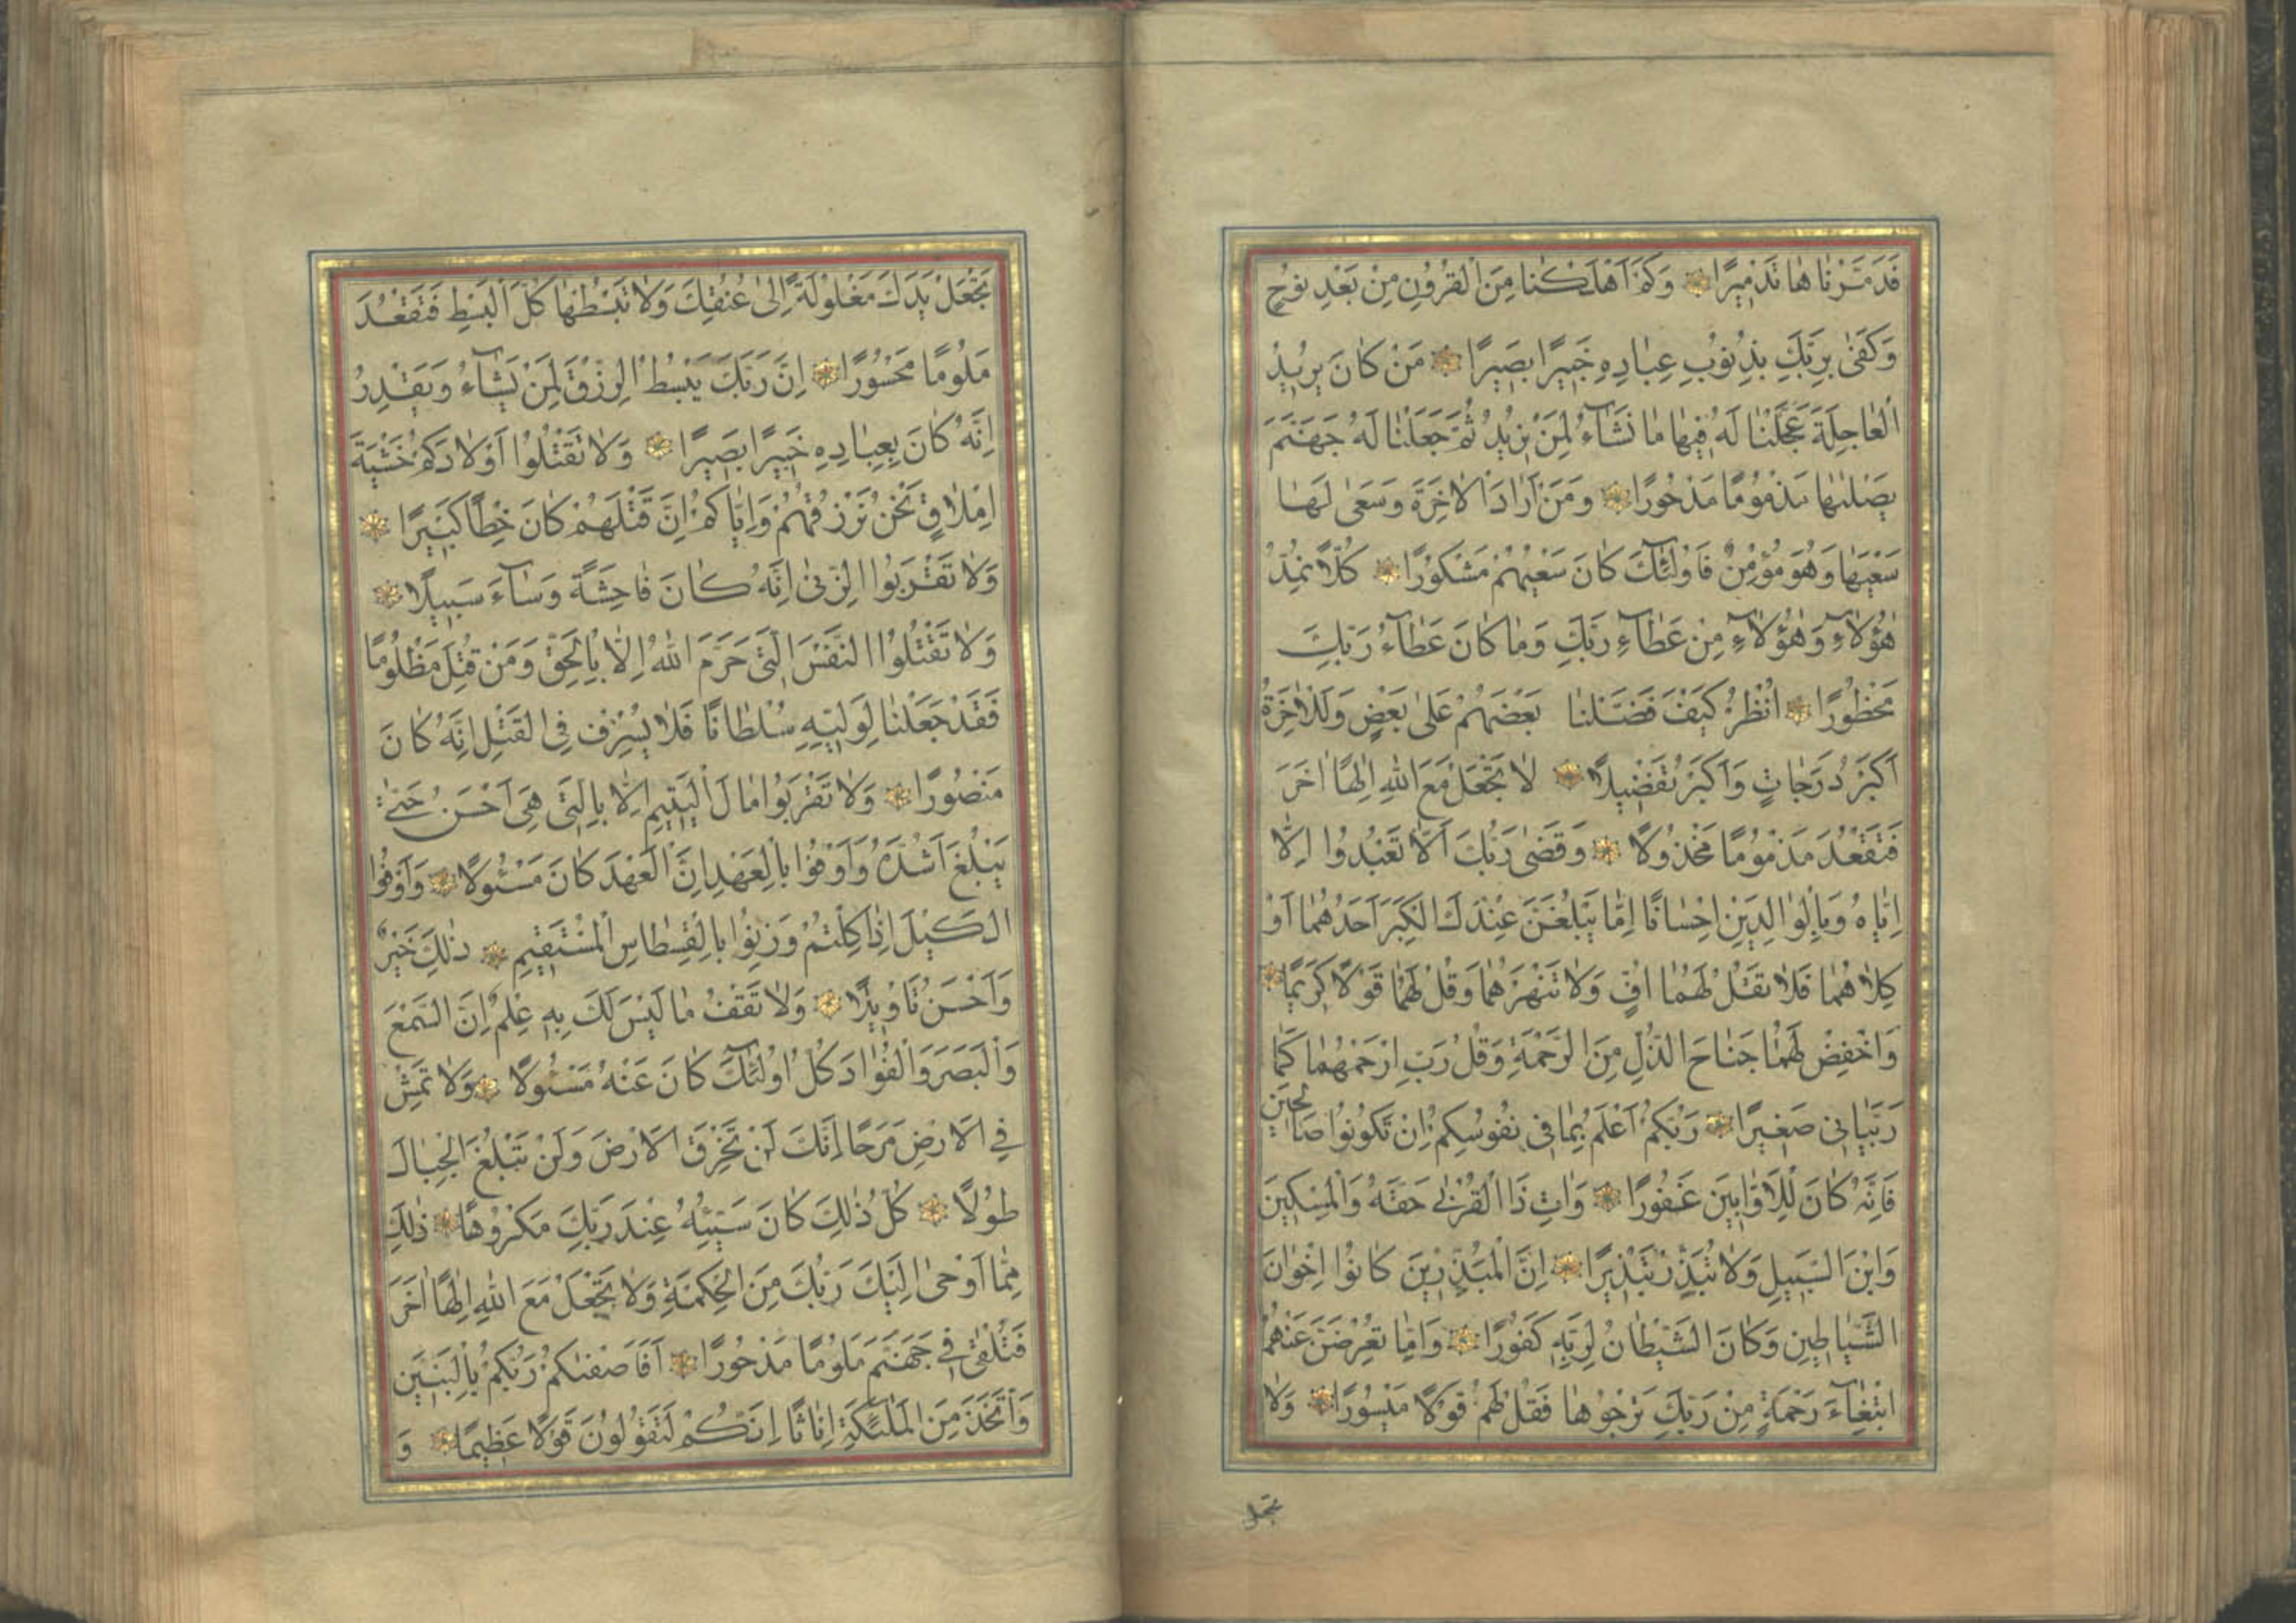 فَدَمَّرْنَاهَا تَدْمِيرًا وَكَمْ اَهْلَكْنَا مِنَ الْقُرُونِ مِنْ بَعْدِ نُوحٍ
وَكَفٰى بِرَبِّكَ بِذُنُوبِ عِبَادِهِ خَبِيرًا بَصِيرًا مَنْ كَانَ يُرِيدُ
الْعَاجِلَةَ عَجَّلْنَا لَهُ فِيهَا مَا نَشَآءُ لِمَنْ نُرِيدُ ثُمَّ جَعَلْنَا لَهُ جَهَنَّمَ
يَصْلٰيهَا مَذْمُومًا مَدْحُورًا وَمَنْ اَرَادَ الْاٰخِرَةَ وَسَعٰى لَهَا
سَعْيَهَا وَهُوَ مُؤْمِنٌ فَاُولٰٓئِكَ كَانَ سَعْيُهُمْ مَشْكُورًا كُلًّا نُمِدُّ
هٰٓؤُلَاءِ وَهٰٓؤُلَاءِ مِنْ عَطَآءِ رَبِّكَ وَمَا كَانَ عَطَآءُ رَبِّكَ
مَحْظُورًا اُنْظُرْ كَيْفَ فَضَّلْنَا بَعْضَهُمْ عَلٰى بَعْضٍ وَلَلْاٰخِرَةُ
اَكْبَرُ دَرَجَاتٍ وَاَكْبَرُ تَفْضِيلًا لَا تَجْعَلْ مَعَ اللّٰهِ اِلٰهًا اٰخَرَ
فَتَقْعُدَ مَذْمُومًا مَخْذُولًا وَقَضٰى رَبُّكَ اَلَّا تَعْبُدُوا اِلَّا
اِيَّاهُ وَبِالْوَالِدَيْنِ اِحْسَانًا اِمَّا يَبْلُغَنَّ عِنْدَكَ الْكِبَرَ اَحَدُهُمَا اَوْ
كِلَاهُمَا فَلَا تَقُلْ لَهُمَا اُفٍّ وَلَا تَنْهَرْهُمَا وَقُلْ لَهُمَا قَوْلًا كَرِيمًا
وَاخْفِضْ لَهُمَا جَنَاحَ الذُّلِّ مِنَ الرَّحْمَةِ وَقُلْ رَبِّ ارْحَمْهُمَا كَمَا
رَبَّيَانِي صَغِيرًا رَبُّكُمْ اَعْلَمُ بِمَا فِي نُفُوسِكُمْ اِنْ تَكُونُوا صَالِحِينَ
فَاِنَّهُ كَانَ لِلْاَوَّابِينَ غَفُورًا وَاٰتِ ذَا الْقُرْبٰى حَقَّهُ وَالْمِسْكِينَ
وَابْنَ السَّبِيلِ وَلَا تُبَذِّرْ تَبْذِيرًا اِنَّ الْمُبَذِّرِينَ كَانُوا اِخْوَانَ
الشَّيَاطِينِ وَكَانَ الشَّيْطَانُ لِرَبِّهِ كَفُورًا وَاِمَّا تُعْرِضَنَّ عَنْهُمُ
ابْتِغَآءَ رَحْمَةٍ مِنْ رَبِّكَ تَرْجُوهَا فَقُلْ لَهُمْ قَوْلًا مَيْسُورًا وَلَا
تجعل
تَجْعَلْ يَدَكَ مَغْلُولَةً اِلٰى عُنُقِكَ وَلَا تَبْسُطْهَا كُلَّ الْبَسْطِ فَتَقْعُدَ
مَلُومًا مَحْسُورًا اِنَّ رَبَّكَ يَبْسُطُ الرِّزْقَ لِمَنْ يَشَآءُ وَيَقْدِرُ
اِنَّهُ كَانَ بِعِبَادِهِ خَبِيرًا بَصِيرًا وَلَا تَقْتُلُوا اَوْلَادَكُمْ خَشْيَةَ
اِمْلَاقٍ نَحْنُ نَرْزُقُهُمْ وَاِيَّاكُمْ اِنَّ قَتْلَهُمْ كَانَ خِطْأً كَبِيرًا
وَلَا تَقْرَبُوا الزِّنٰى اِنَّهُ كَانَ فَاحِشَةً وَسَآءَ سَبِيلًا
وَلَا تَقْتُلُوا النَّفْسَ الَّتِي حَرَّمَ اللّٰهُ اِلَّا بِالْحَقِّ وَمَنْ قُتِلَ مَظْلُومًا
فَقَدْ جَعَلْنَا لِوَلِيِّهِ سُلْطَانًا فَلَا يُسْرِفْ فِي الْقَتْلِ اِنَّهُ كَانَ
مَنْصُورًا وَلَا تَقْرَبُوا مَالَ الْيَتِيمِ اِلَّا بِالَّتِي هِيَ اَحْسَنُ حَتّٰى
يَبْلُغَ اَشُدَّهُ وَاَوْفُوا بِالْعَهْدِ اِنَّ الْعَهْدَ كَانَ مَسْئُولًا وَاَوْفُوا
الْكَيْلَ اِذَا كِلْتُمْ وَزِنُوا بِالْقِسْطَاسِ الْمُسْتَقِيمِ ذٰلِكَ خَيْرٌ
وَاَحْسَنُ تَاْوِيلًا وَلَا تَقْفُ مَا لَيْسَ لَكَ بِهِ عِلْمٌ اِنَّ السَّمْعَ
وَالْبَصَرَ وَالْفُؤَادَ كُلُّ اُولٰٓئِكَ كَانَ عَنْهُ مَسْئُولًا وَلَا تَمْشِ
فِي الْاَرْضِ مَرَحًا اِنَّكَ لَنْ تَخْرِقَ الْاَرْضَ وَلَنْ تَبْلُغَ الْجِبَالَ
طُولًا كُلُّ ذٰلِكَ كَانَ سَيِّئُهُ عِنْدَ رَبِّكَ مَكْرُوهًا ذٰلِكَ
مِمَّا اَوْحٰى اِلَيْكَ رَبُّكَ مِنَ الْحِكْمَةِ وَلَا تَجْعَلْ مَعَ اللّٰهِ اِلٰهًا اٰخَرَ
فَتُلْقٰى فِي جَهَنَّمَ مَلُومًا مَدْحُورًا اَفَاَصْفٰىكُمْ رَبُّكُمْ بِالْبَنِينَ
وَاتَّخَذَ مِنَ الْمَلٰٓئِكَةِ اِنَاثًا اِنَّكُمْ لَتَقُولُونَ قَوْلًا عَظِيمًا وَ